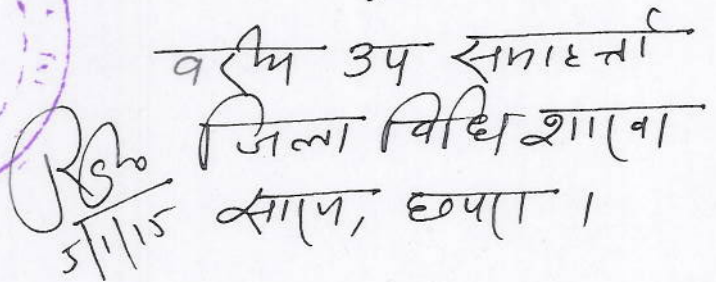 वरीय उप समाहर्त्ता
जिला विधि शाखा
सारण, छपरा ।
5/1/15